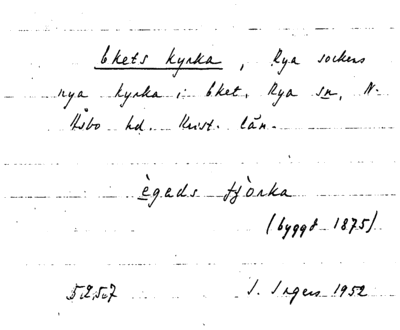 Ekets kyrka, Rya sockens
nya kyrka i Eket, Rya sn, N.
Åsbo hd. Krist. län.
ègads tjòrka
(byggd 1875)
5257 I. Ingers 1952